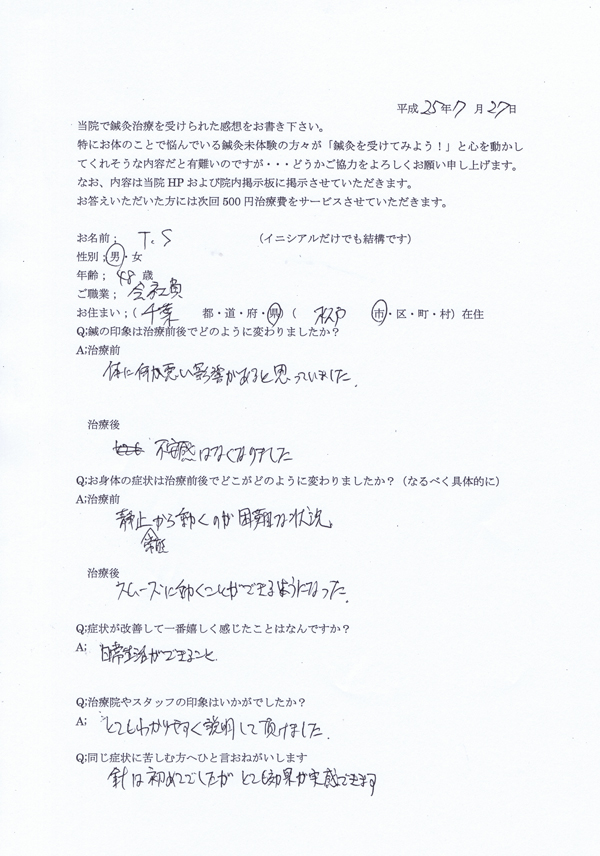 平成 25年 7 月 27日
当院で鍼灸治療を受けられた感想をお書き下さい。
特にお体のことで悩んでいる鍼灸未体験の方々が「鍼灸を受けてみよう！」と心を動かし
てくれそうな内容だと有難いのですが・・・どうかご協力をよろしくお願い申し上げます。
なお、内容は当院HPおよび院内掲示板に掲示させていただきます。
お答えいただいた方には次回500円治療費をサービスさせていただきます。
お名前； T.S （イニシアルだけでも結構です）
性別；男・女
年齢； 48 歳
ご職業； 会社員
お住まい；（ 千葉 都・道・府・県）（ 松戸 市・区・町・村）在住
Q;鍼の印象は治療前後でどのように変わりましたか？
A;治療前
体に何か悪い影響があると思っていました.
治療後
不安感はなくなりました
Q;お身体の症状は治療前後でどこがどのように変わりましたか？（なるべく具体的に）
A;治療前
静止から動くのが困難な状況。
治療後
スムーズに動くことができるようになった.
Q;症状が改善して一番嬉しく感じたことはなんですか？
A; 日常生活ができること.
Q;治療院やスタッフの印象はいかがでしたか？
A; とてもわかりやすく説明して頂けました.
Q;同じ症状に苦しむ方へひと言おねがいします
針は初めてでしたが とても効果が実感できます